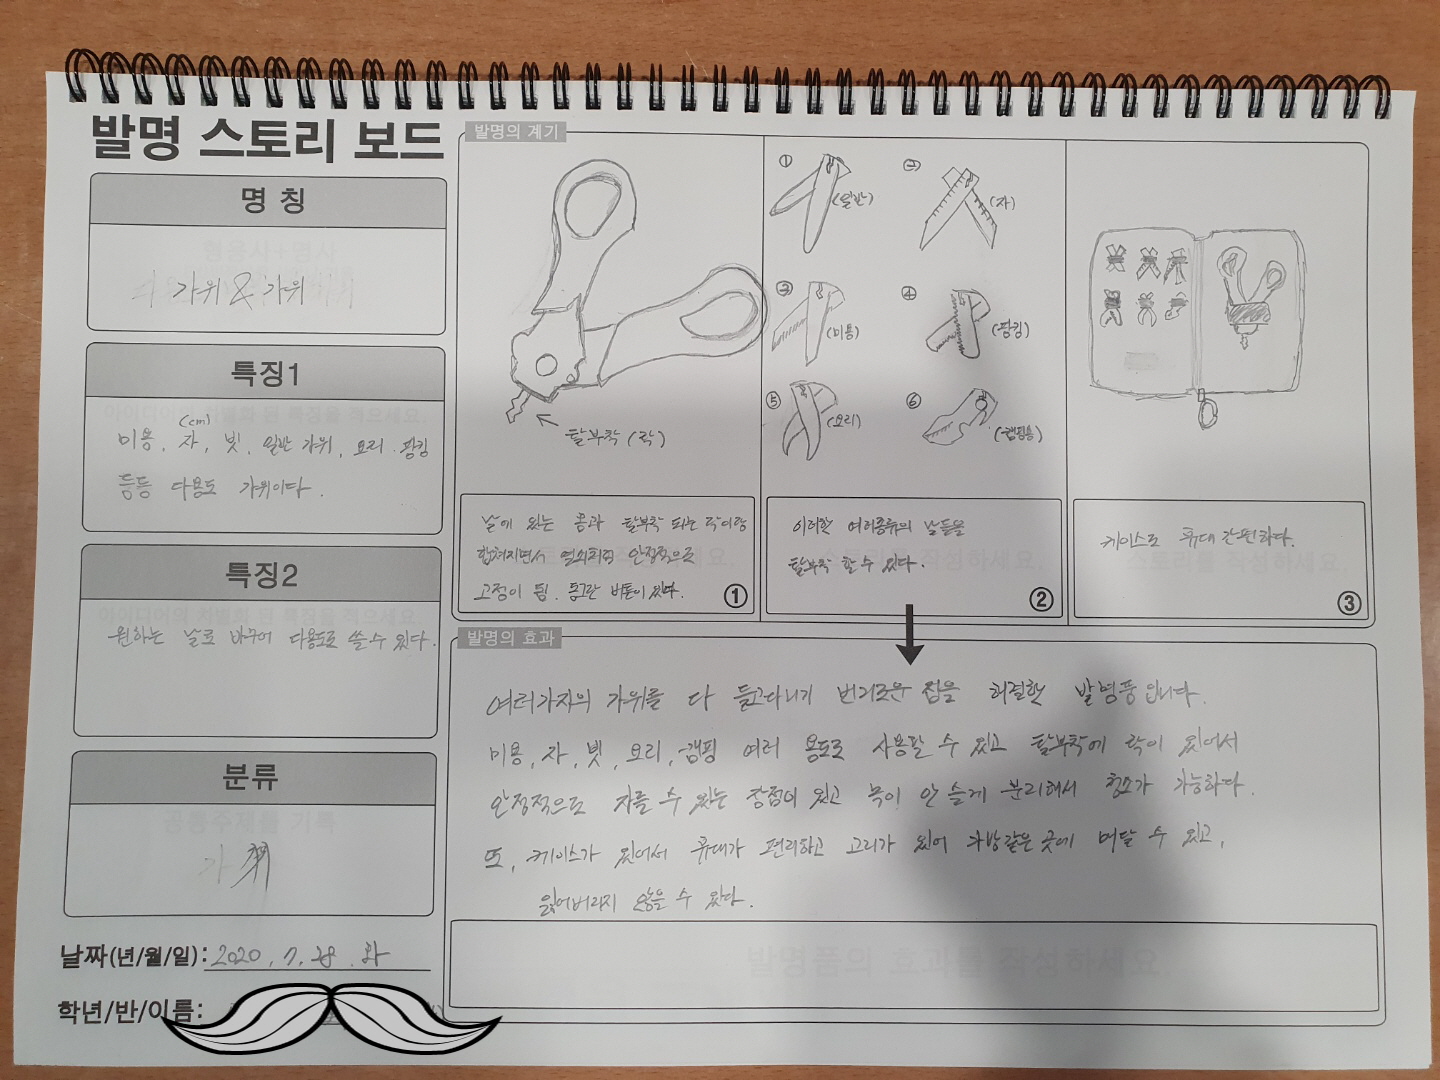 발명 스토리 보드
명 칭
가위 & 가위
특징1
(cm)
미용, 자, 빗, 일반 가위, 요리, 핑킹
등등 다용도 가위이다.
특징2
원하는 날로 바꾸어 다용도로 쓸 수 있다.
분류
날짜(년/월/일): 2020. 7. 28. 화
학년/반/이름:
발명의 계기
탈부착 (락)
날에 있는 홈과 탈부착 되는 락이랑
합쳐지면서 열쇠처럼 안정적으로
고정이 됨. 동그란 버튼이 있다.
①
① (일반)
② (자)
③ (미용)
④ (핑킹)
⑤ (요리)
⑥ (캠핑용)
이러한 여러종류의 날들을
탈부착 할 수 있다.
②
케이스로 휴대 간편하다.
③
발명의 효과
여러가지의 가위를 다 들고다니기 번거로운 점을 해결한 발명품입니다.
미용, 자, 빗, 요리, 캠핑 여러 용도로 사용할 수 있고 탈부착에 락이 있어서
안정적으로 자를 수 있는 장점이 있고 녹이 안 슬게 분리해서 청소가 가능하다.
또, 케이스가 있어서 휴대가 편리하고 고리가 있어 가방같은 곳에 매달 수 있고,
잃어버리지 않을 수 있다.